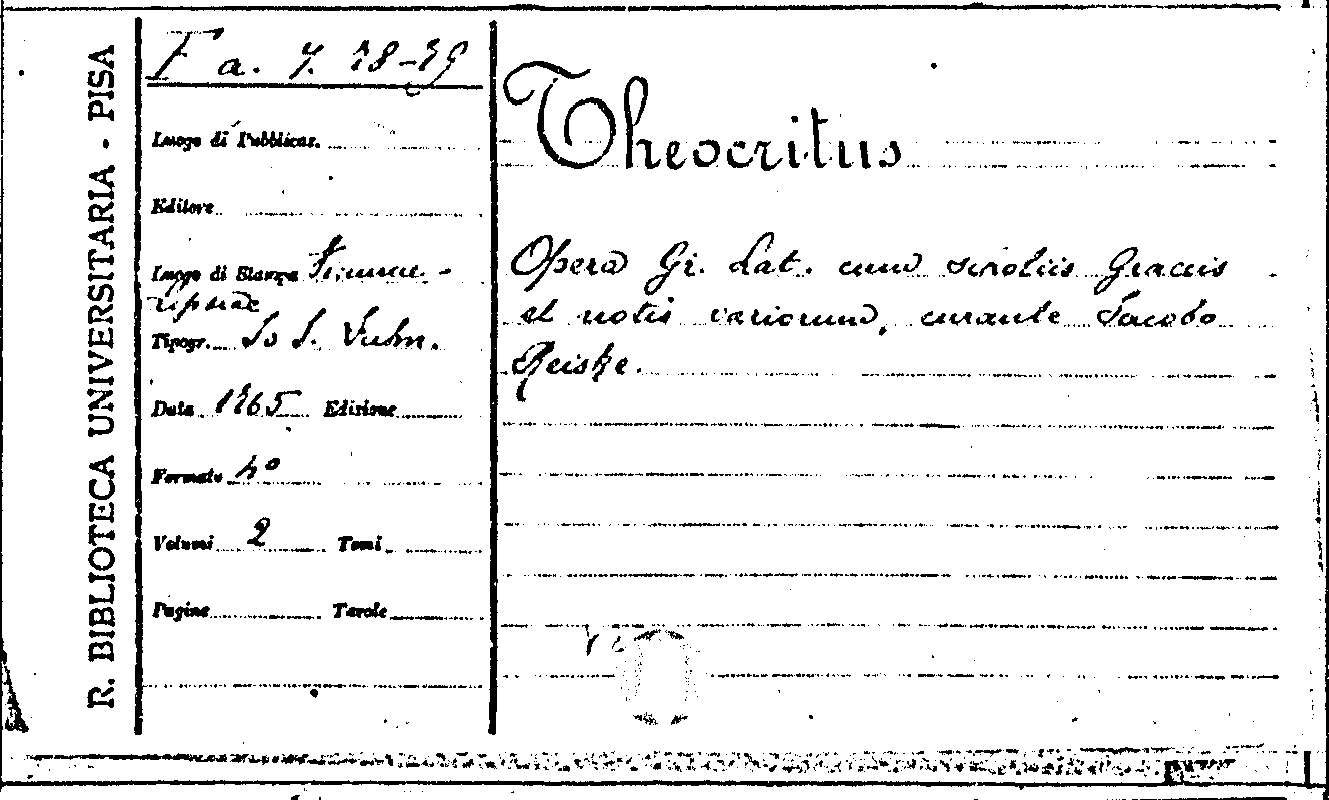 R. BIBLIOTECA UNIVERSITARIA - PISA
F a. 7. 28-29
Luogo di Pubblicaz.
Editore
Luogo di Stampa Viennae -
Lipsiae
Tipogr. Io
Data 1765 Edizione
Formato 4º
Volumi 2 Tomi
Pagine Tavole
Theocritus
Opera Gr. Lat. cum scoliis Graecis
et notis variorum, curante Iacobo
Reiske.